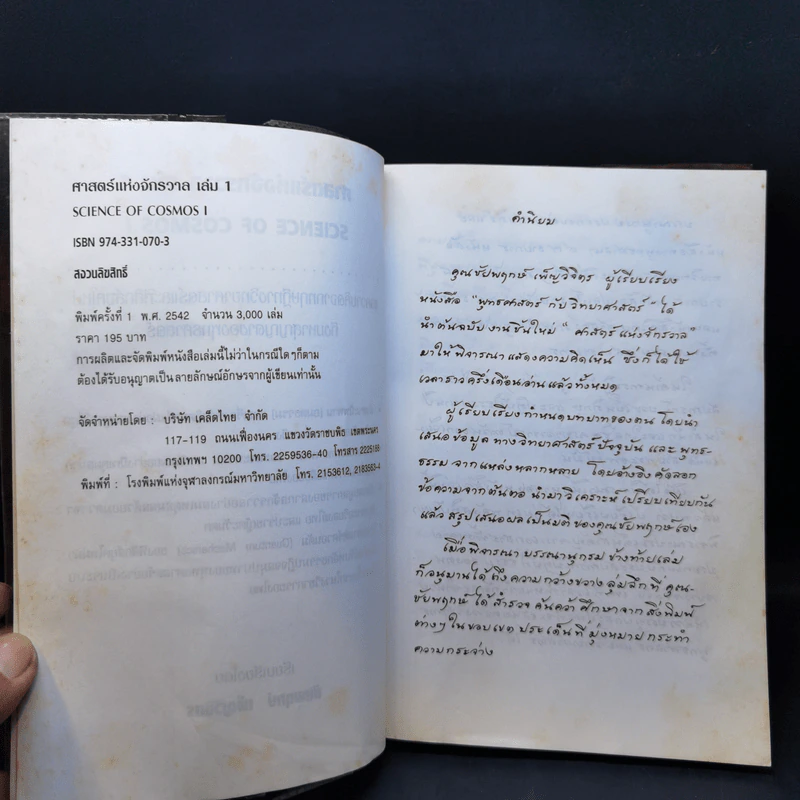 ศาสตร์แห่งจักรวาล เล่ม 1
SCIENCE OF COSMOS I
ISBN 974-331-070-3
สงวนลิขสิทธิ์
พิมพ์ครั้งที่ 1 พ.ศ. 2542 จำนวน 3,000 เล่ม
ราคา 195 บาท
การผลิตและจัดพิมพ์หนังสือเล่มนี้ไม่ว่าในกรณีใดๆก็ตาม
ต้องได้รับอนุญาตเป็นลายลักษณ์อักษรจากผู้เขียนเท่านั้น
จัดจำหน่ายโดย : บริษัท เคล็ดไทย จำกัด
117-119 ถนนเฟื่องนคร แขวงวัดราชบพิธ เขตพระนคร
กรุงเทพฯ 10200 โทร. 2259536-40 โทรสาร
พิมพ์ที่ : โรงพิมพ์แห่งจุฬาลงกรณ์มหาวิทยาลัย โทร. 2153612,
คำนิยม
คุณชัยพฤกษ์ เพ็ญวิจิตร ผู้เรียบเรียง
หนังสือ "พุทธศาสตร์ กับ วิทยาศาสตร์" ได้
นำต้นฉบับ งานชิ้นใหม่ "ศาสตร์ แห่งจักรวาล"
มาให้ พิจารณา แสดงความคิดเห็น ซึ่งก็ได้ใช้
เวลาราวครึ่งเดือนอ่านแล้วทั้งหมด
ผู้เรียบเรียงกำหนดบทบาทของตน โดยนำ
เสนอ ข้อมูล ทางวิทยาศาสตร์ ปัจจุบัน และ พุทธ-
ธรรม จากแหล่งหลากหลาย โดยอ้างอิง คัดลอก
ข้อความจาก ต้นตอ นำมาวิเคราะห์ เปรียบเทียบกัน
แล้ว สรุปเสนอผลเป็นมติ ของคุณชัยพฤกษ์เอง
เมื่อพิจารณา บรรณานุกรม ข้างท้ายเล่ม
ก็อนุมานได้ ถึง ความกว้างขวาง ลุ่มลึก ที่ คุณ-
ชัยพฤกษ์ ได้สำรวจ ค้นคว้า ศึกษาจาก สิ่งพิมพ์
ต่างๆ ในขอบเขต ประเด็นที่มุ่งหมาย กระทำ
ความกระจ่าง